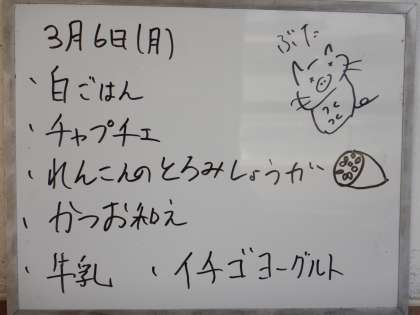 3月6日(月)
ぶた
・白ごはん
・チャプチェ
・れんこんのとろみしょうが
・かつお和え
・牛乳 ・イチゴヨーグルト